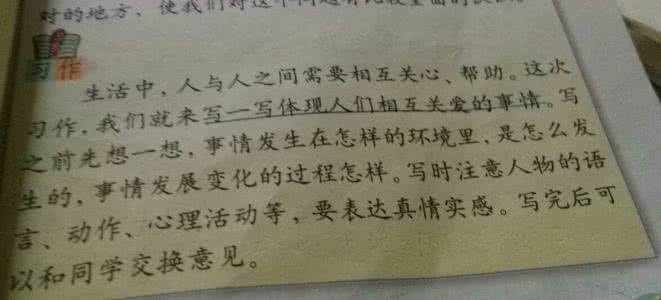 对的地方，使我们对这个问题有比较全面的认识。
习作
生活中，人与人之间需要相互关心、帮助。这次
习作，我们就来写一写体现人们相互关爱的事情。写
之前先想一想，事情发生在怎样的环境里，是怎么发
生的，事情发展变化的过程怎样。写时注意人物的语
言、动作、心理活动等，要表达真情实感。写完后可
以和同学交换意见。